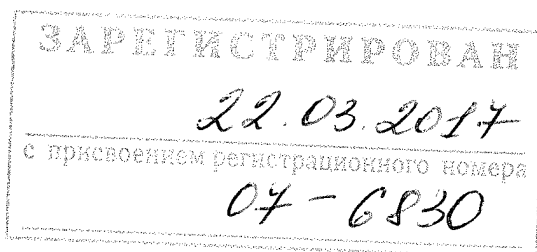 ЗАРЕГИСТРИРОВАН
22.03.2017
с присвоением регистрационного номера
07-6830